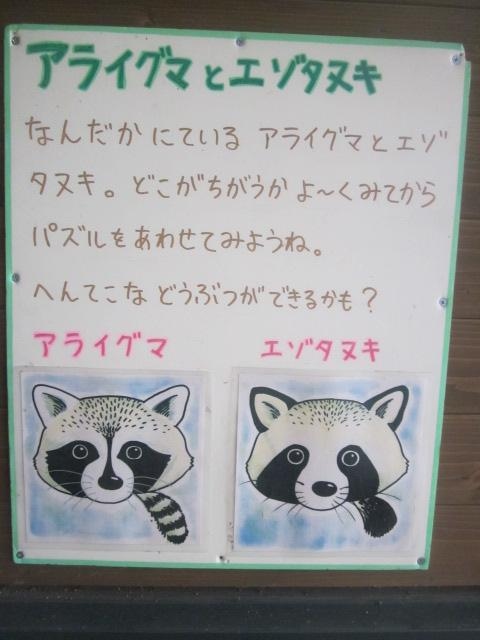 アライグマとエゾタヌキ
なんだか にている アライグマと エゾ
タヌキ。どこがちがうか よ～くみてから
パズルをあわせてみようね。
へんてこな どうぶつができるかも？
アライグマ
エゾタヌキ